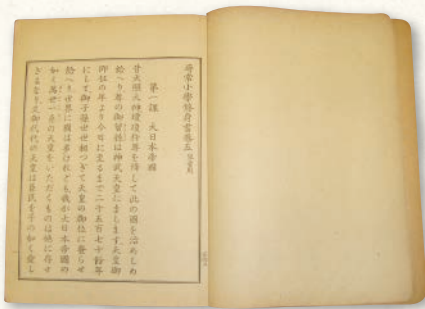 尋常小學修身書卷五 兒童用
第一課 大日本帝國
昔天照大神瓊瓊杵尊を降して此の國を治めしめ
給へり尊の御曾孫は神武天皇にまします天皇御
卽位の年より今日に至るまで二千五百七十餘年
にして御子孫世世相つぎて天皇の御位に登らせ
給へり世界に國は多けれども我が大日本帝國の
如く萬世一系の天皇をいただくものは他に存せ
ざるなり又御代代の天皇は臣民を子の如く愛し